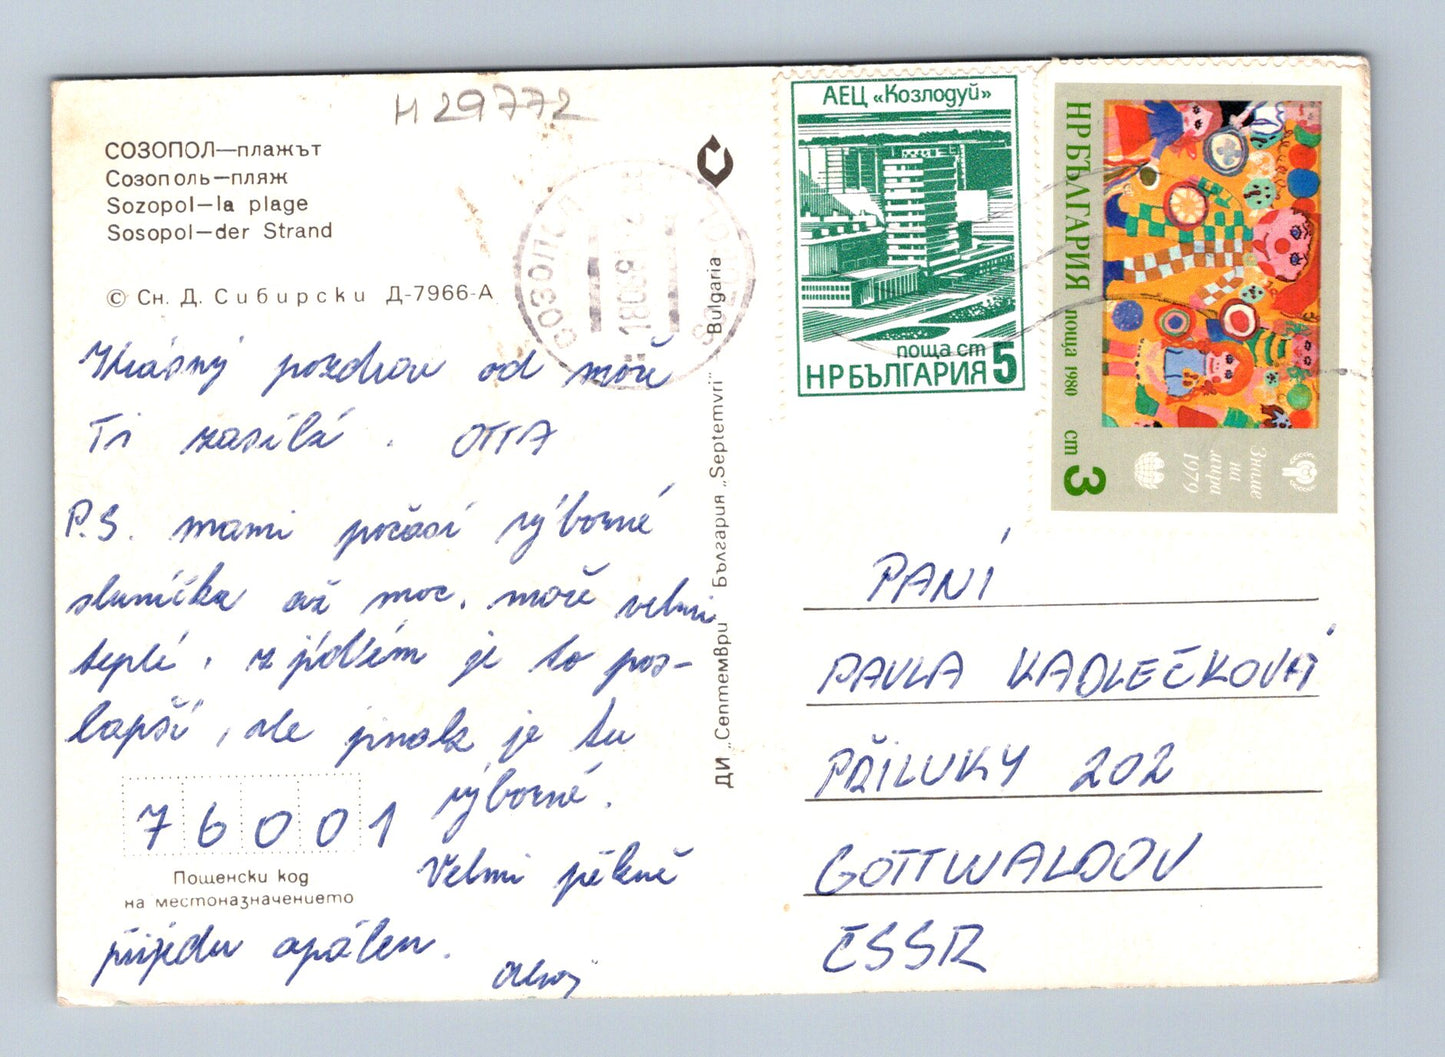 H 29772
СОЗОПОЛ—плажът
Созополь—пляж
Sozopol—la plage
Sosopol—der Strand
© Сн. Д. Сибирски Д-7966-А
Krásný pozdrav od moře
Ti zasílá . OTTA
P.S. mami počasí výborné
sluníčka až moc, moře velmi
teplé, z jídlem je to pos-
lapší, ale jinak je tu
výborné.
76001
Velmi pěkně
Пощенски код
на местоназначението
přijedu opálen.
Ahoj
ДИ „Септември" България „Septemvri" Bulgaria
СОЗОПОЛ
SOZOPOL
АЕЦ «Козлодуй»
поща ст 5
НР БЪЛГАРИЯ
НР БЪЛГАРИЯ поща 1980 ст 3
Знаме
на
мира
1979
PANÍ
PAVLA KADLEČKOVÁ
PŘÍLUKY 202
GOTTWALDOV
ČSSR